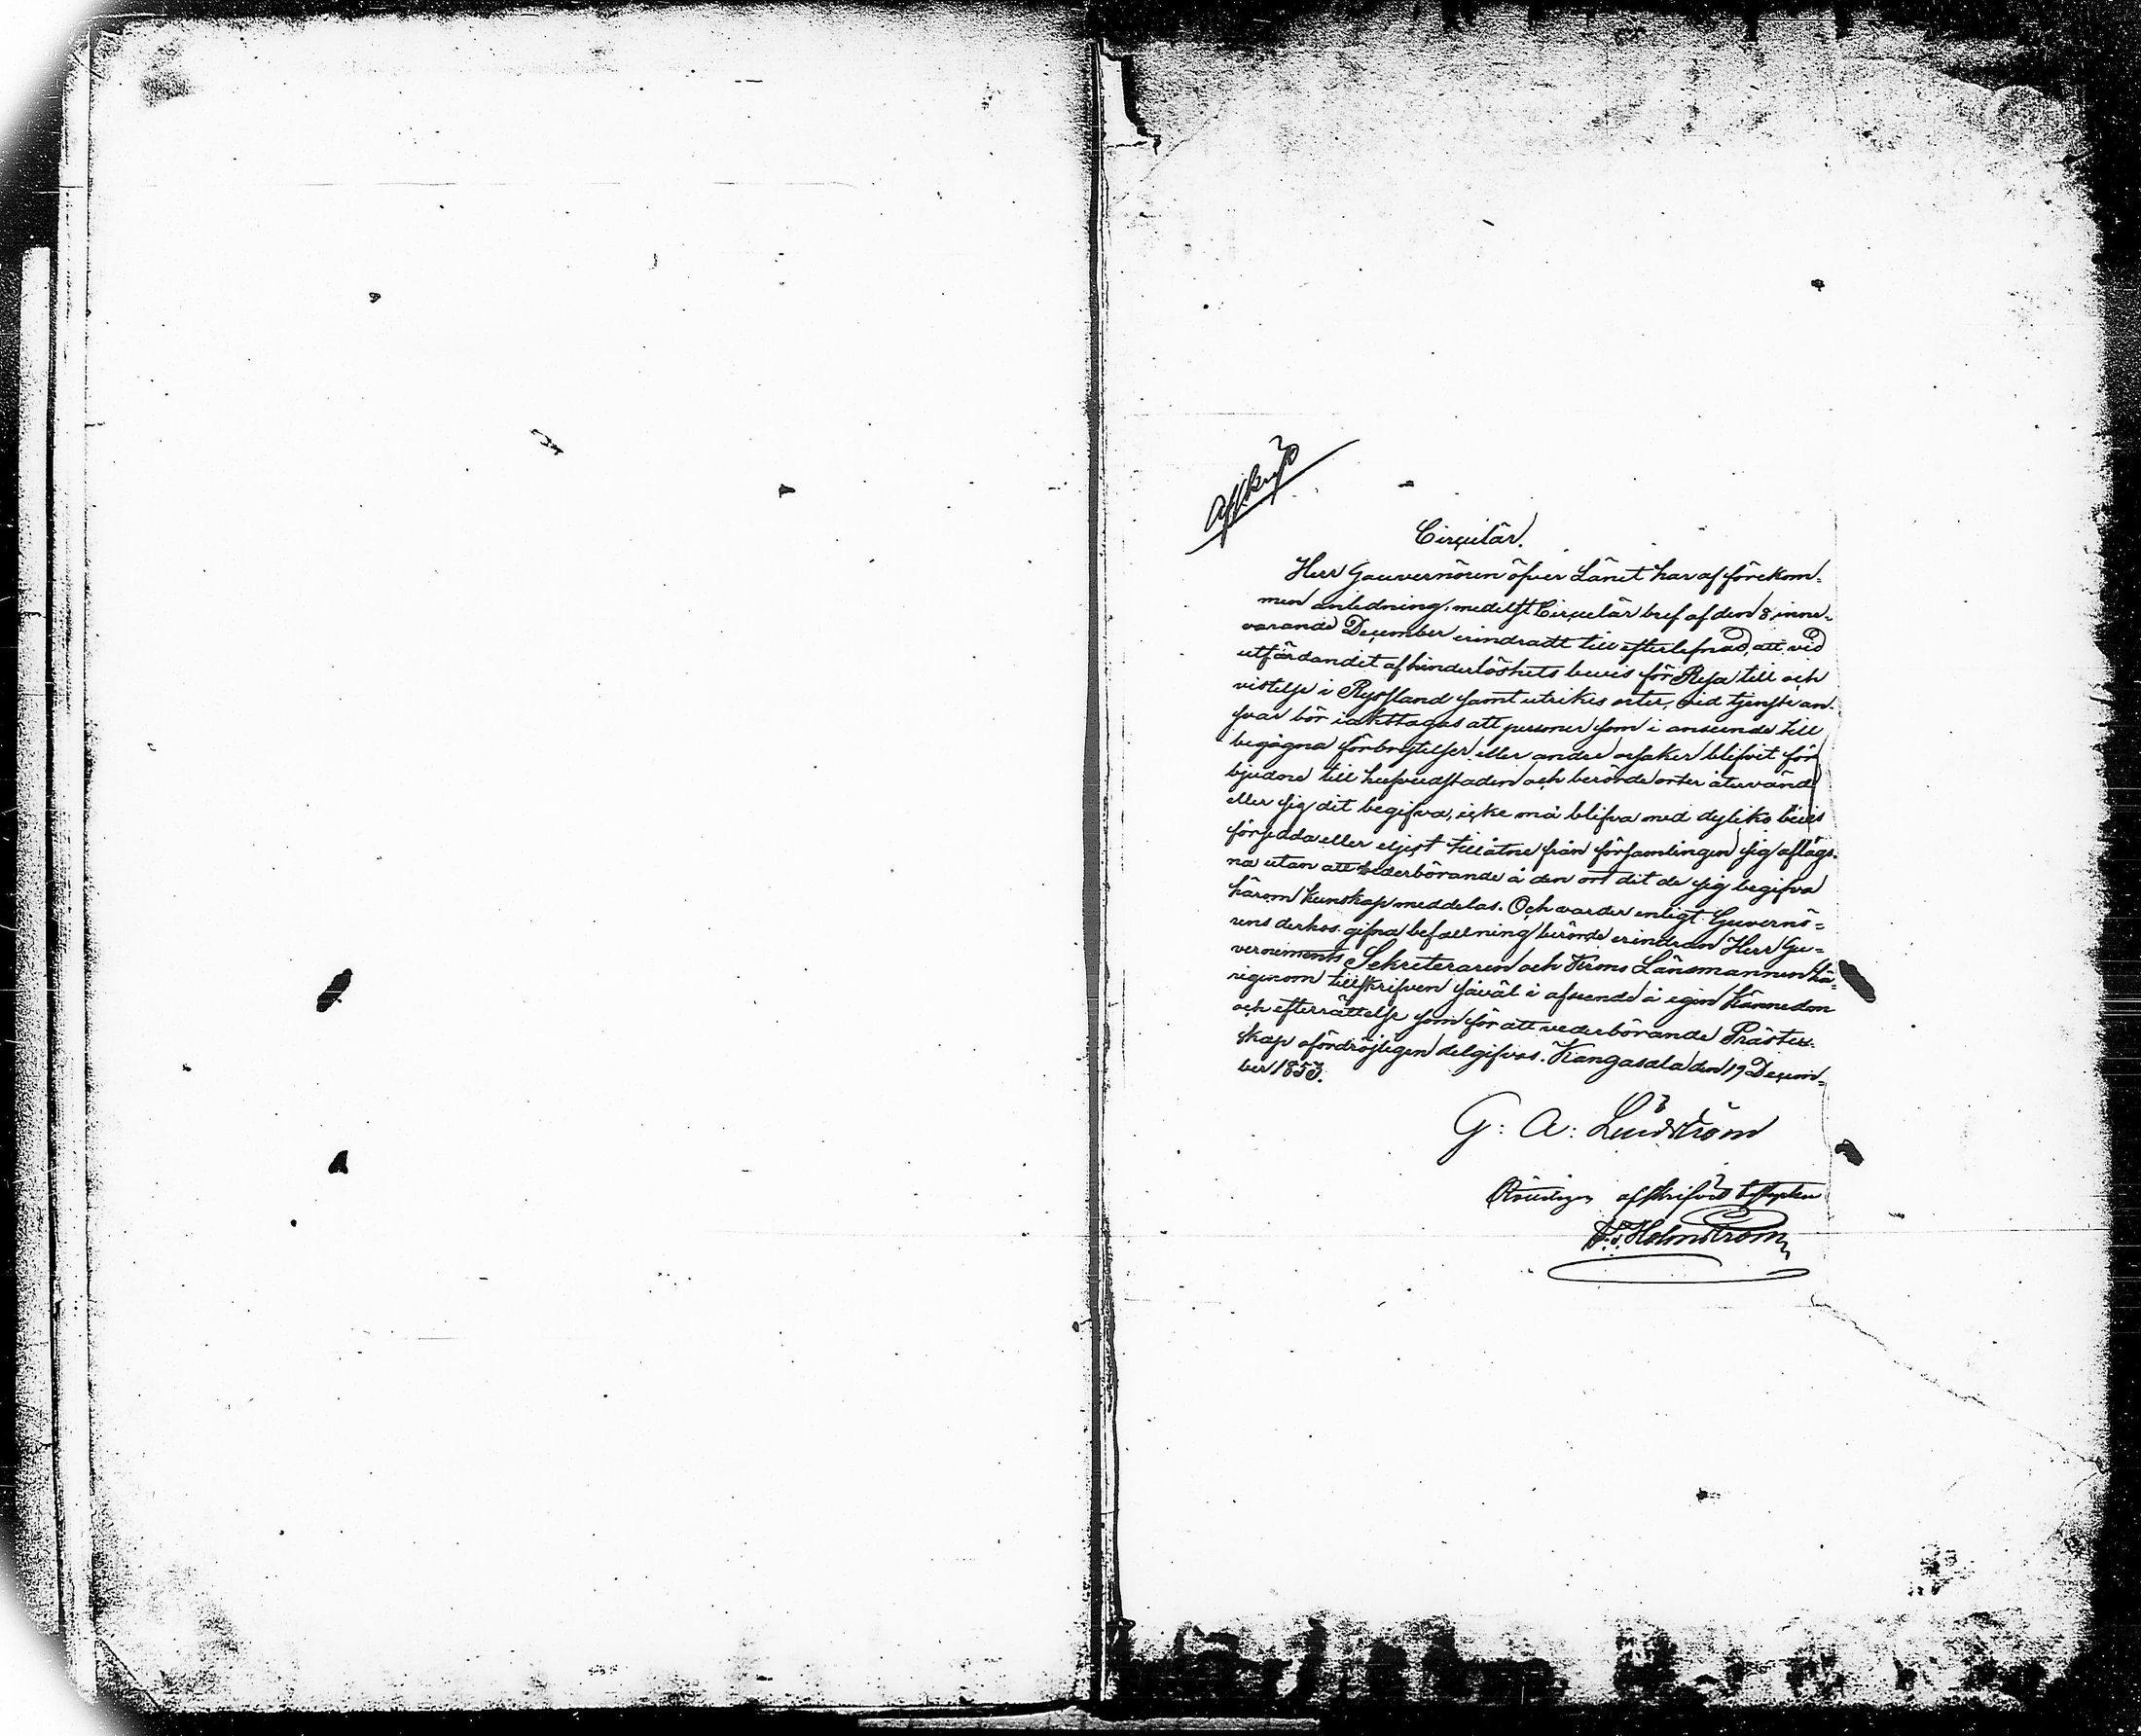 Afskrift
Circulär.
Herr Gouvernören öfver Länet har af förekom-
men anledning, medelst Circulär bref af den 8 inne-
varande December erindradt till efterlefnad, att vid
utfärdandet af hinderlöshets bevis för Resa till och
vistelse i Ryssland samt utrikes orter, vid tjenste an-
svar bör iakttagas att personer som i anseende till
begågna förbrytelser eller andra orsaker blifvit för
bjudne till hufvudstaden och berörde orter återvända
eller sig dit begifva, icke må blifva med dylika bevis
försedda eller eljest tillåtne från församlingen sig aflägs-
na utan att vederbörande å den ort dit de sig begifva
härom kunskap meddelas. Och varder enligt Guvernö-
rens derhos gifna befallning berörde erindran Herr Gu-
vernements Sekreteraren och Krono Länsmannen hä-
rigenom tillskrifven såväl i afseende å egen kännedom
och efterrättelse som för att vederbörande Präster-
skap ofördröjligen delgifvas. Kangasala den 19 Decem-
ber 1853.
G: A: Lindström
afskrifvit betygar
Holmström